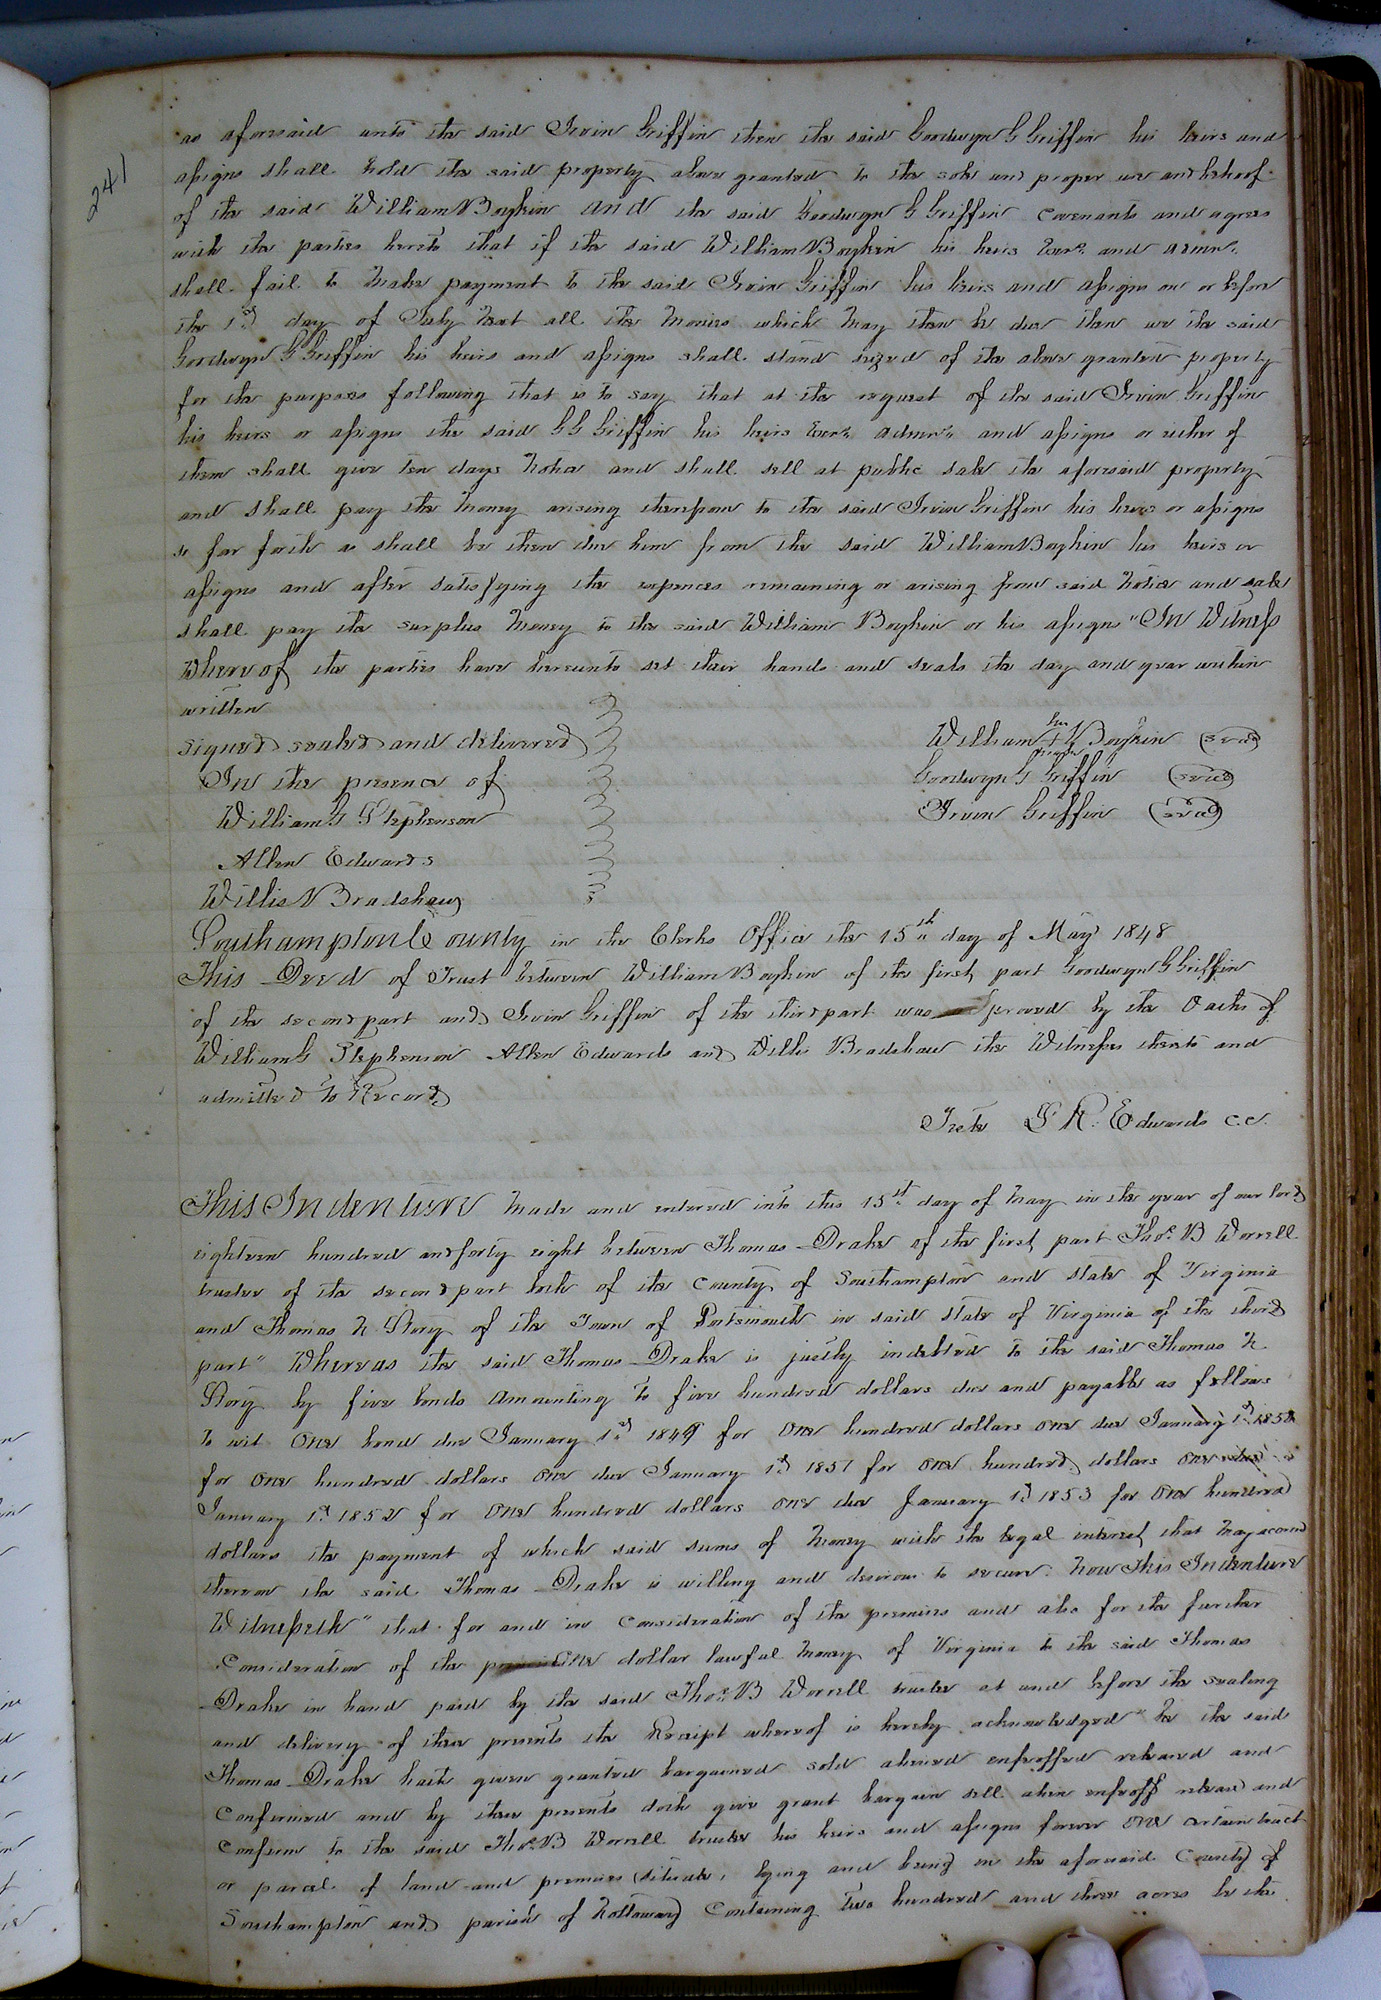 241
as aforesaid unto the said Irvin Griffin then the said Goodwyn G Griffin his heirs and
assigns shall hold the said property above granted to the sole and proper use and behoof
of the said William Boykin and the said Goodwyn G Griffin covenants and agrees
with the parties hereto that if the said William Boykin his heirs Exrs. and admr.
shall fail to make payment to the said Irvin Griffin his heirs and assigns on or before
the 1st day of July next all the monies which may then be due then we the said
Goodwyn G Griffin his heirs and assigns shall stand seized of the above granted property
for the purposes following that is to say that at the request of the said Irvin Griffin
his heirs or assigns the said G G Griffin his heirs Exrs. admrs. and assigns or either of
them shall give ten days notice and shall sell at public sale the aforesaid property
and shall pay the money arising therefrom to the said Irvin Griffin his heirs or assigns
so far forth as shall be then due him from the said William Boykin his heirs or
assigns and after satisfying the expences remaining or arising from said notice and sale
shall pay the surplus money to the said William Boykin or his assigns "In Witness
Whereof the parties have hereunto set their hands and seals the day and year within
written
signed sealed and delivered
In the presence of
William G Stephenson
Allen Edwards
Willis Bradshaw
William his + mark Boykin (seal)
Goodwyn G Griffin (seal)
Irvin Griffin (seal)
Southampton County in the Clerks Office the 15th day of May 1848
This Deed of Trust between William Boykin of the first part Goodwyn G Griffin
of the second part and Irvin Griffin of the third part was proved by the Oaths of
William G Stephenson Allen Edwards and Willis Bradshaw the Witnesses thereto and
admitted to Record
Teste L R. Edwards c.c.
This Indenture made and entered into this 15th day of May in the year of our lord
eighteen hundred and forty eight between Thomas Drake of the first part Thos. B Worrell
trustee of the second part both of the County of Southampton and state of Virginia
and Thomas N Story of the Town of Portsmouth in said state of Virginia of the third
part" Whereas the said Thomas Drake is justly indebted to the said Thomas N
Story by five bonds amounting to five hundred dollars due and payable as follows
To wit One bond due January 1st 1849 for One hundred dollars one due January 1st 1850
for One hundred dollars one due January 1st 1851 for one hundred dollars one due
January 1st 1852 for One hundred dollars one due January 1st 1853 for One hundred
dollars the payment of which said sums of money with the legal interest that may accrue
thereon the said Thomas Drake is willing and desirous to secure. Now This Indenture
Witnesseth" that for and in consideration of the premises and also for the further
consideration of the One dollar lawful money of Virginia to the said Thomas
Drake in hand paid by the said Thos. B Worrell trustee at and before the sealing
and delivery of these presents the Receipt whereof is hereby acknowledged" he the said
Thomas Drake hath given granted bargained sold aliened enfeoffed released and
confirmed and by these presents doth give grant bargain sell alien enfeoff release and
confirm to the said Thos. B Worrell trustee his heirs and assigns forever one certain tract
or parcel of land and premises (situate, lying and being in the aforesaid County of
Southampton and parish of Nottoway) Containing two hundred and three acres be the